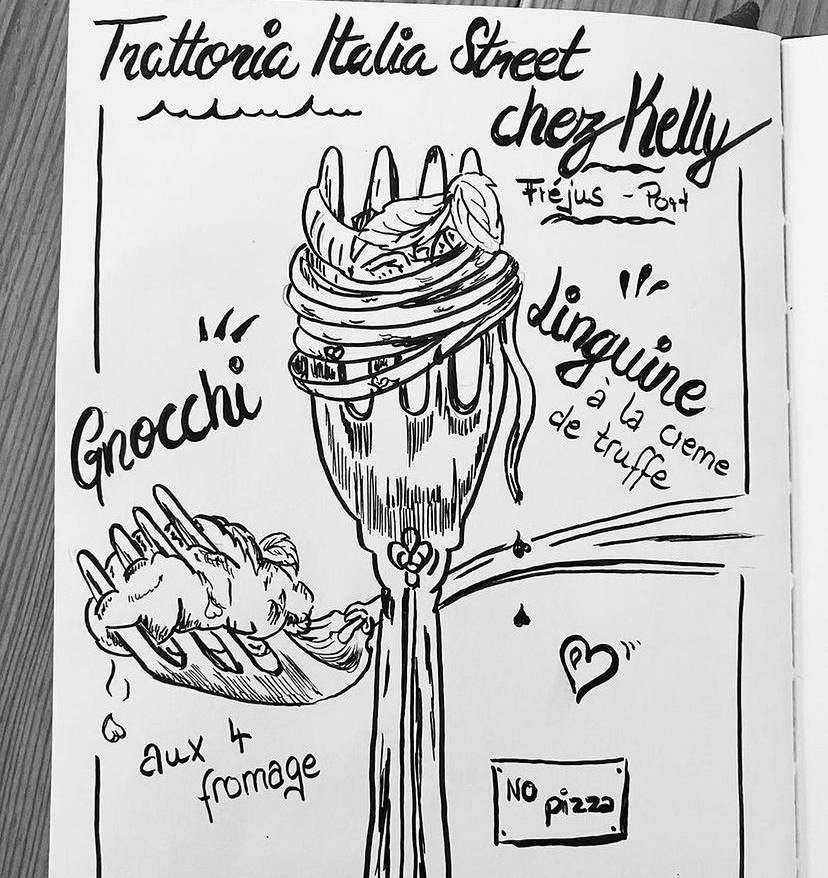 Trattoria Italia Street
chez Kelly
Fréjus - Port
Linguine
à la creme
de truffe
Gnocchi
aux 4
fromage
NO pizza